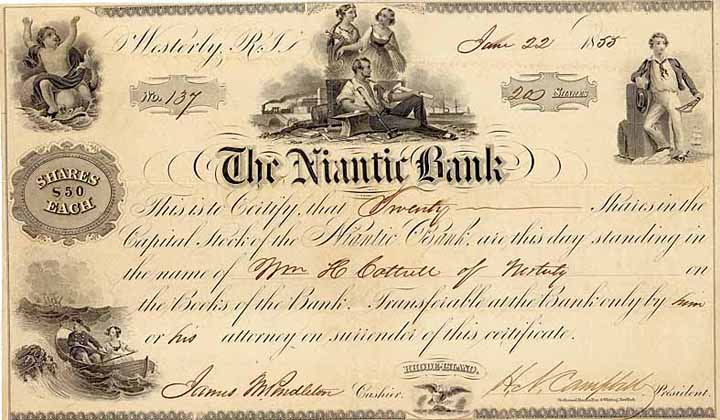 Westerly, R.I. June 22 1855
No. 137
20 Shares
The Niantic Bank
SHARES $50 EACH.
This is to Certify, that Twenty Shares in the
Capital Stock of the Niantic Bank, are this day standing in
the name of Wm H Cottrell of on
the Books of the Bank. Transferable at the Bank only by him
or his attorney on surrender of this certificate.
RHODE-ISLAND.
James M Pendleton Cashier. H. N. Campbell President.